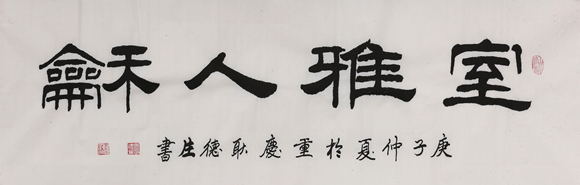 室雅人龢
庚子仲夏於重慶耿德生書